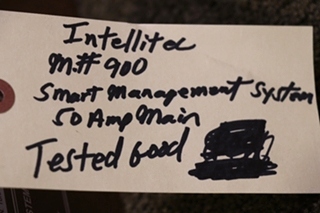 Intellitec
M.# 900
Smart Management System
50 Amp Main
Tested Good